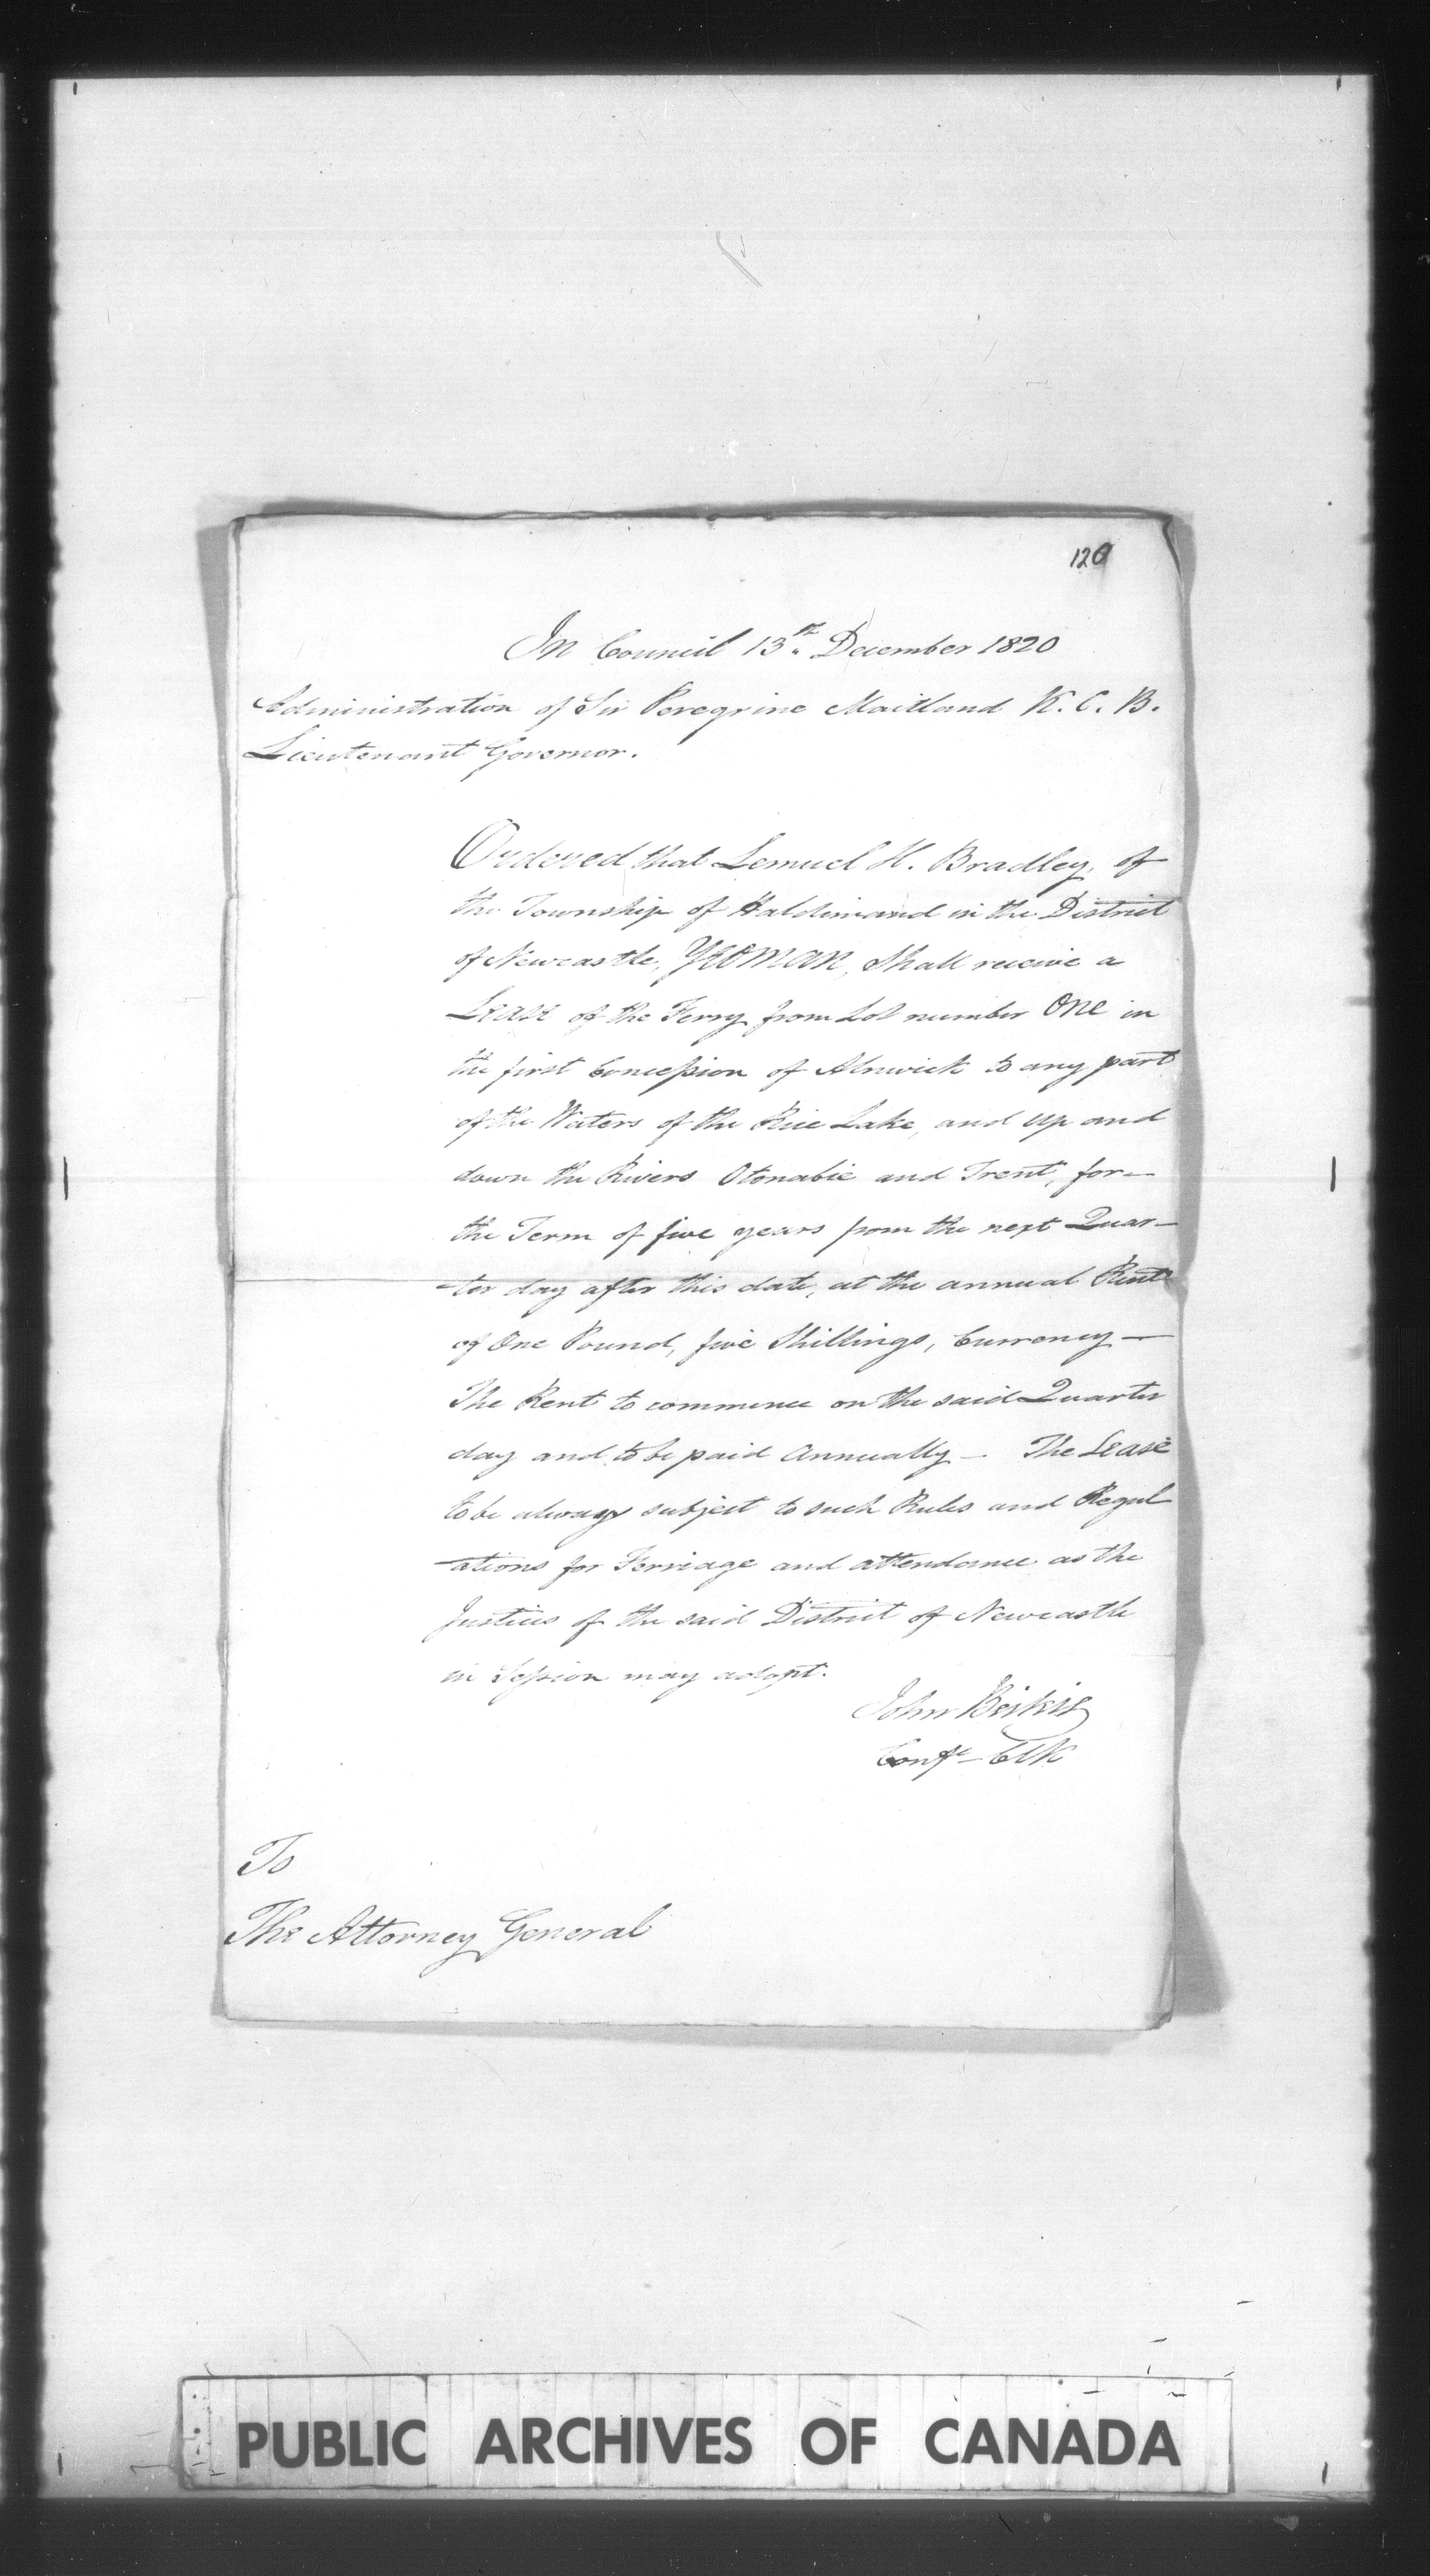 120
In Council 13th December 1820
Administration of Sir Peregrine Maitland K. C. B.
Lieutenant Governor.
Ordered that Lemuel H. Bradley, of
the Township of Haldimand in the District
of Newcastle, Yeoman, Shall receive a
Lease of the Ferry from Lot number One in
the first Concession of Alnwick to any part
of the Waters of the Rice Lake, and up and
down the Rivers Otonabie and Trent, for—
the Term of five years from the next Quar—
—ter day after this date, at the annual Rent
of One Pound, five Shillings, Currency—
The Rent to commence on the said Quarter
day and to be paid Annually — The Lease
to be always subject to such Rules and Regul
—ations for Ferriage and attendance as the
Justices of the said District of Newcastle
in Session may adopt.
John Beikie
Conf. Clk
To
The Attorney General
PUBLIC ARCHIVES OF CANADA